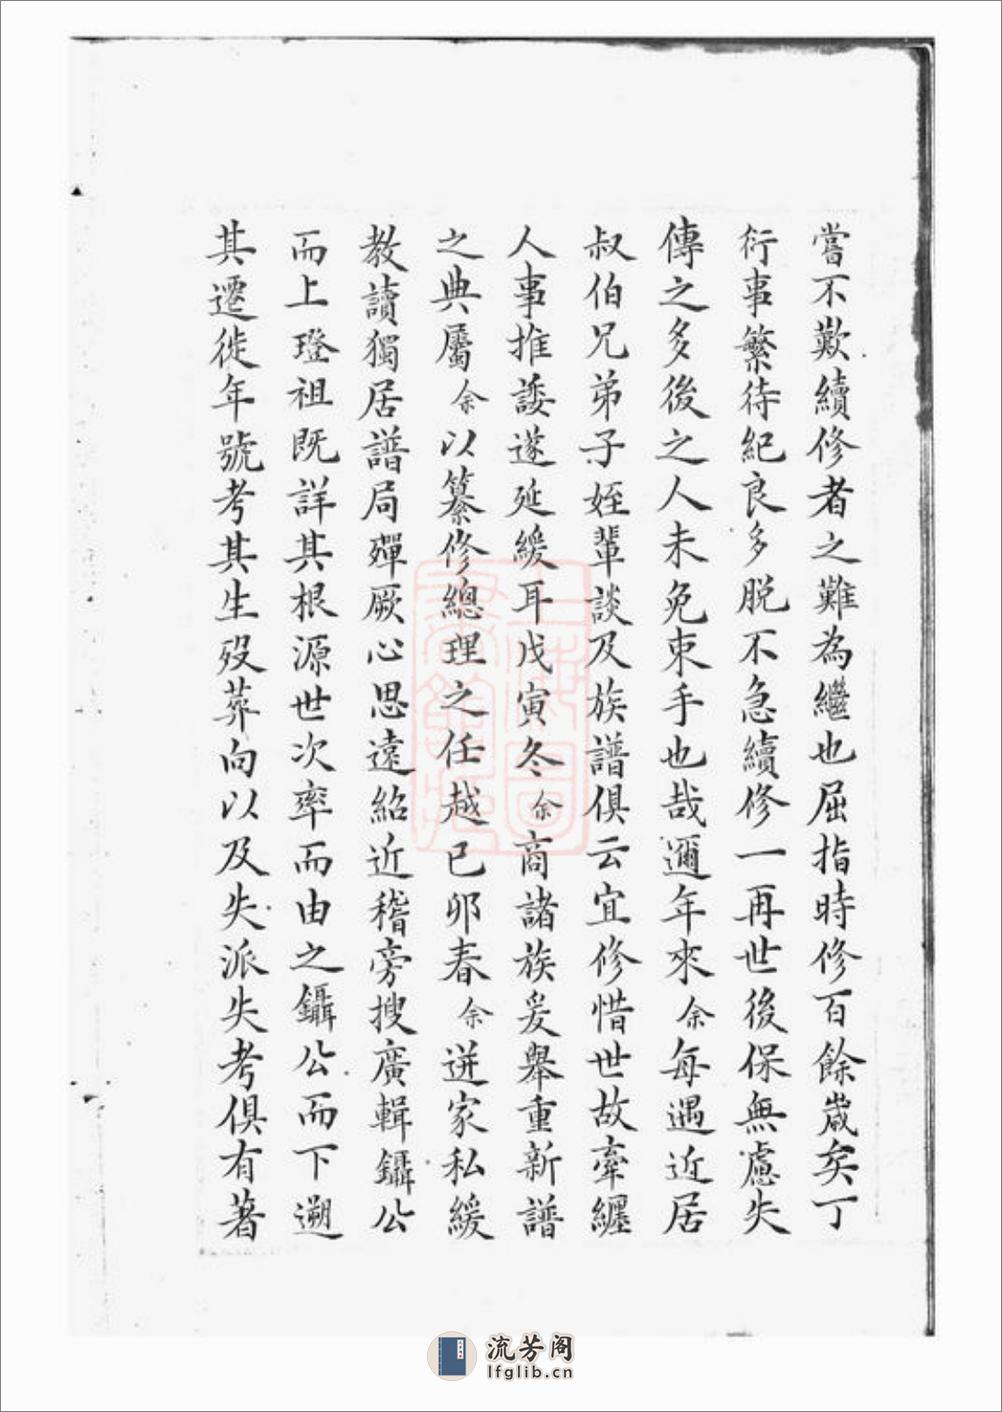 嘗不歎續修者之難為繼也屈指時修百餘歲矣丁
衍事繁待紀良多脫不急續修一再世後保無慮失
傳之多後之人未免束手也哉邇年來余每遇近居
叔伯兄弟子姪輩談及族譜俱云宜修惜世故牽纏
人事推諉遂延緩耳戊寅冬余商諸族爰舉重新譜
之典屬余以纂修總理之任越己卯春余迸家私緩
教讀獨居譜局殫厥心思遠紹近稽旁搜廣輯鑷公
而上璒祖既詳其根源世次率而由之鑷公而下遡
其遷徙年號考其生歿葬向以及失派失考俱有著
上海圖書館藏
流芳阁
lfglib.cn